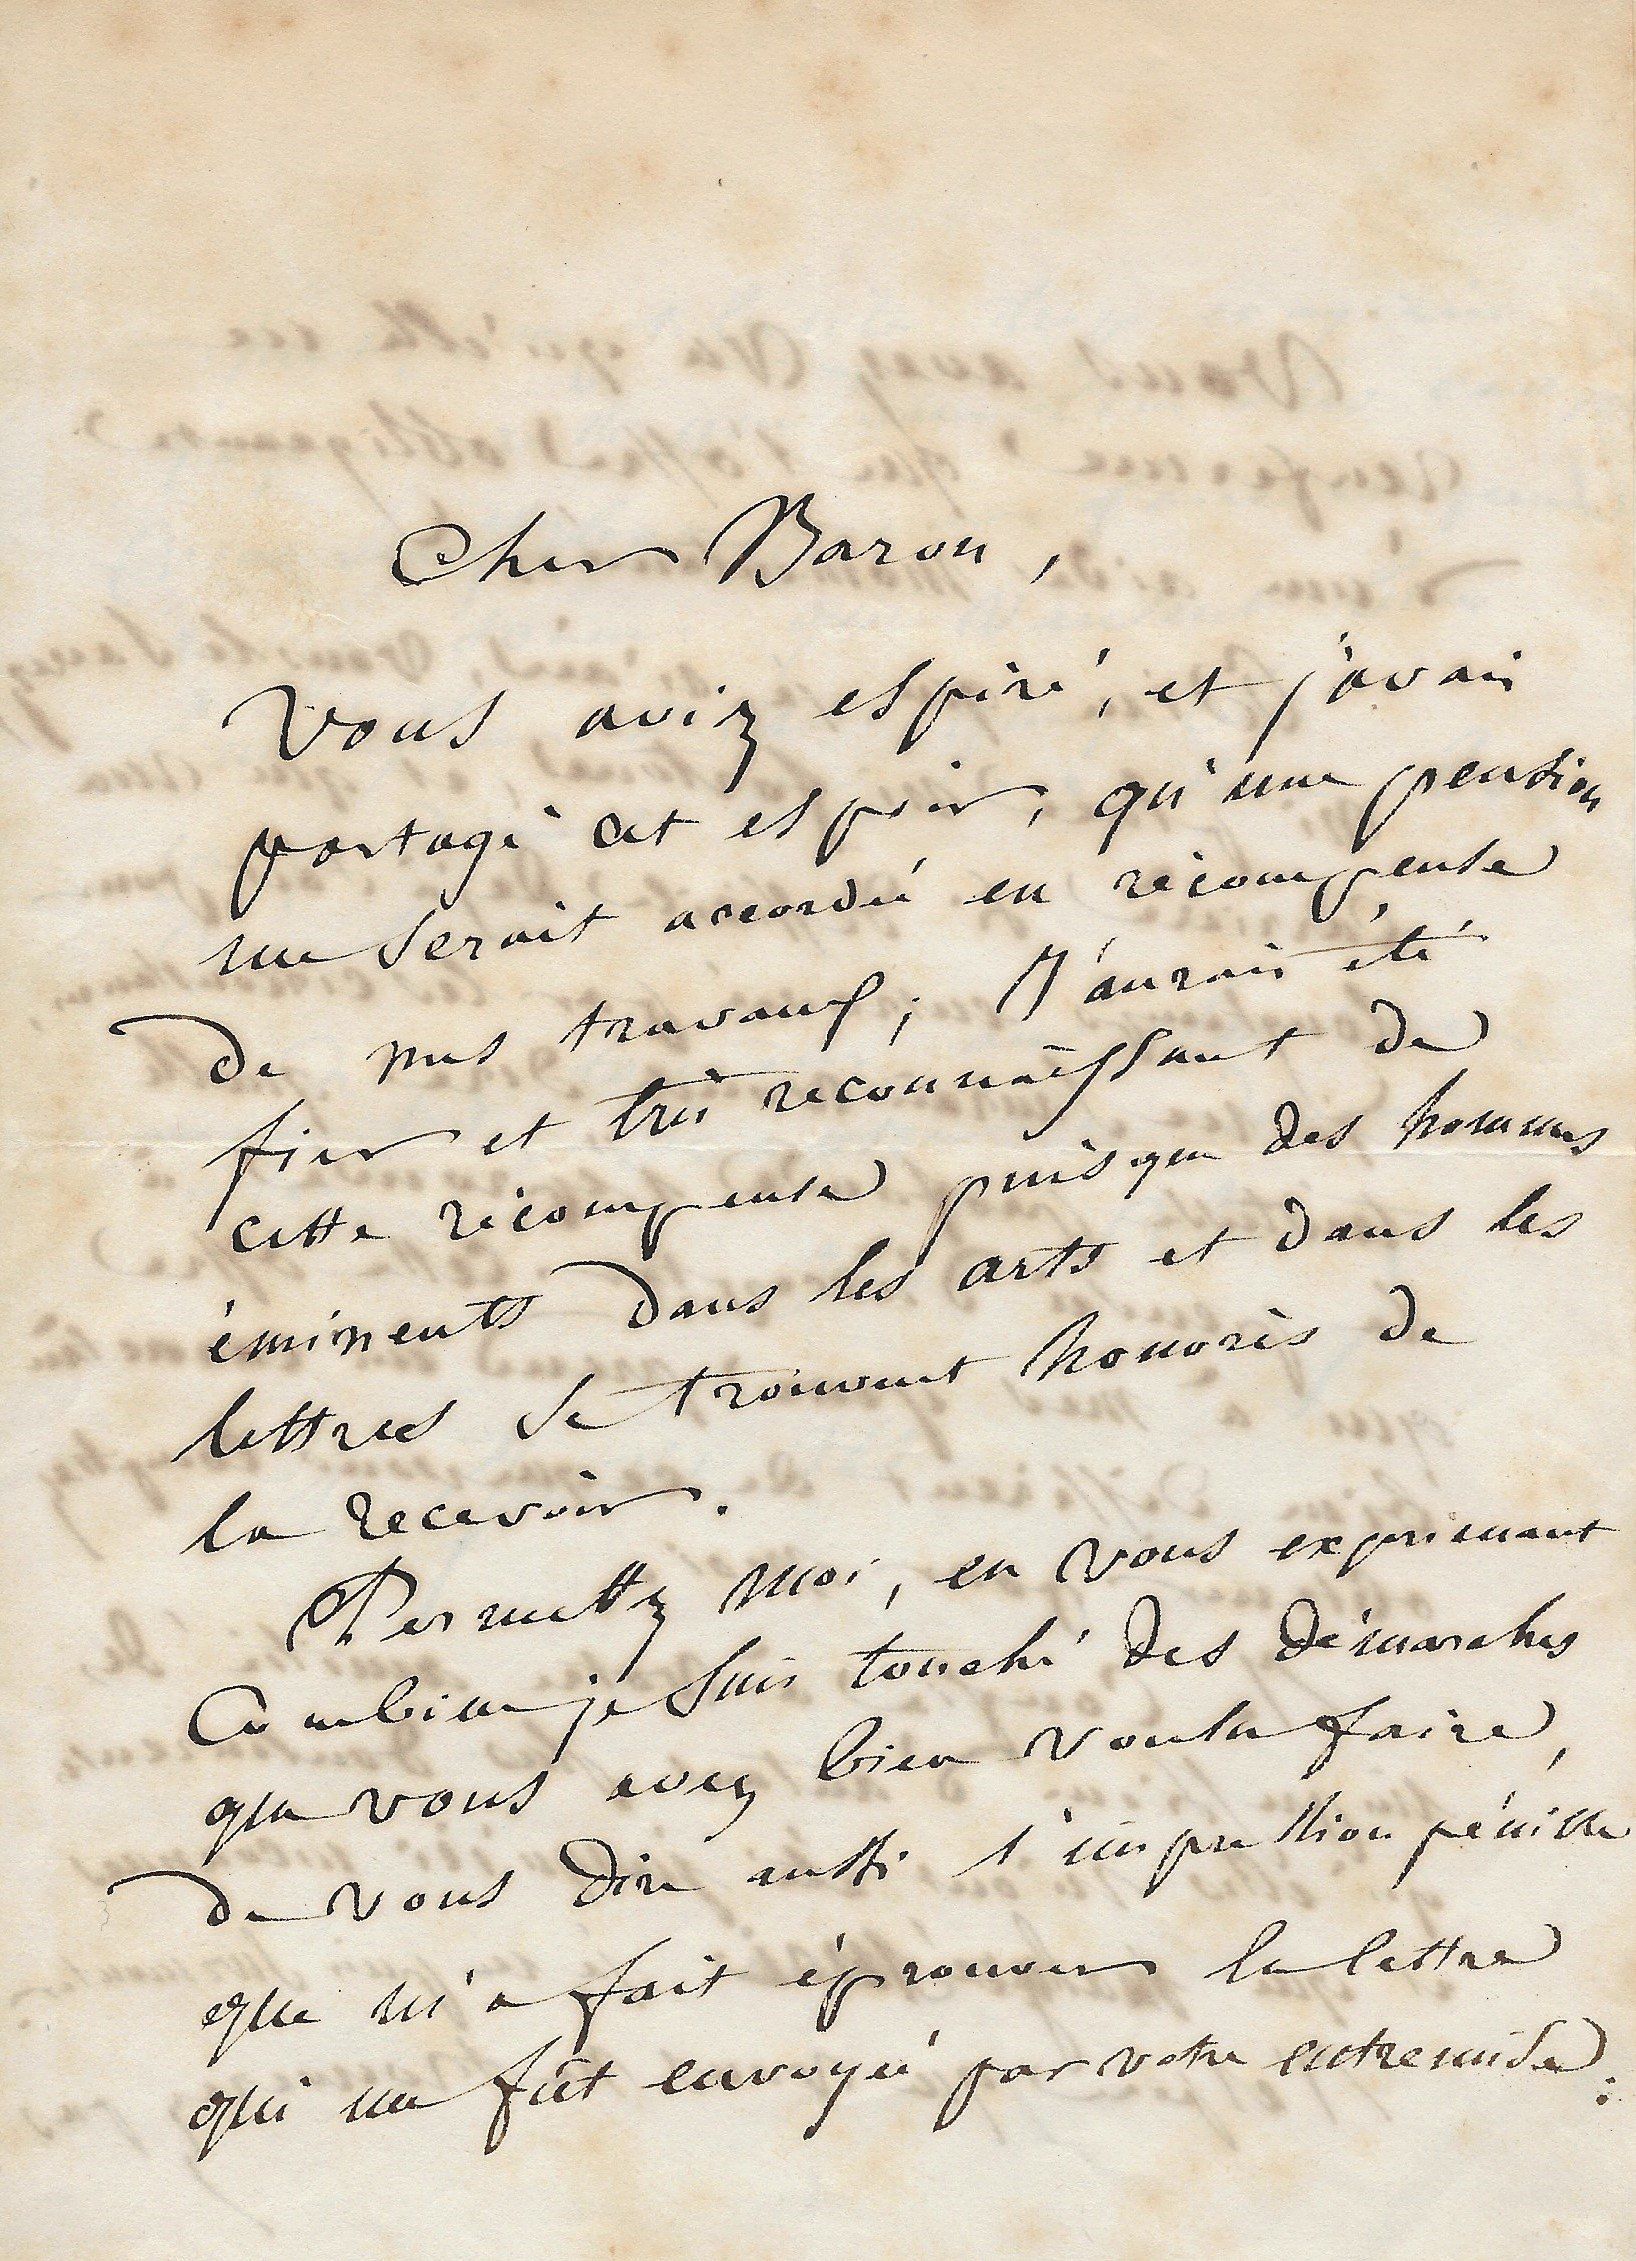 Cher Baron,
Vous aviez espéré, et j'avais
partagé cet espoir, qu'une pension
me serait accordée en récompense
de mes travaux; J'aurais été
fier et très reconnaissant de
cette récompense puisque des hommes
éminents dans les arts et dans les
lettres se trouvent honorés de
la recevoir.
Permettez moi, en vous exprimant
Combien je suis touché des démarches
que vous avez bien voulu faire,
de vous dire aussi l'impression pénible
que m'a fait éprouver la lettre
qui me fût envoyée par votre entremise: